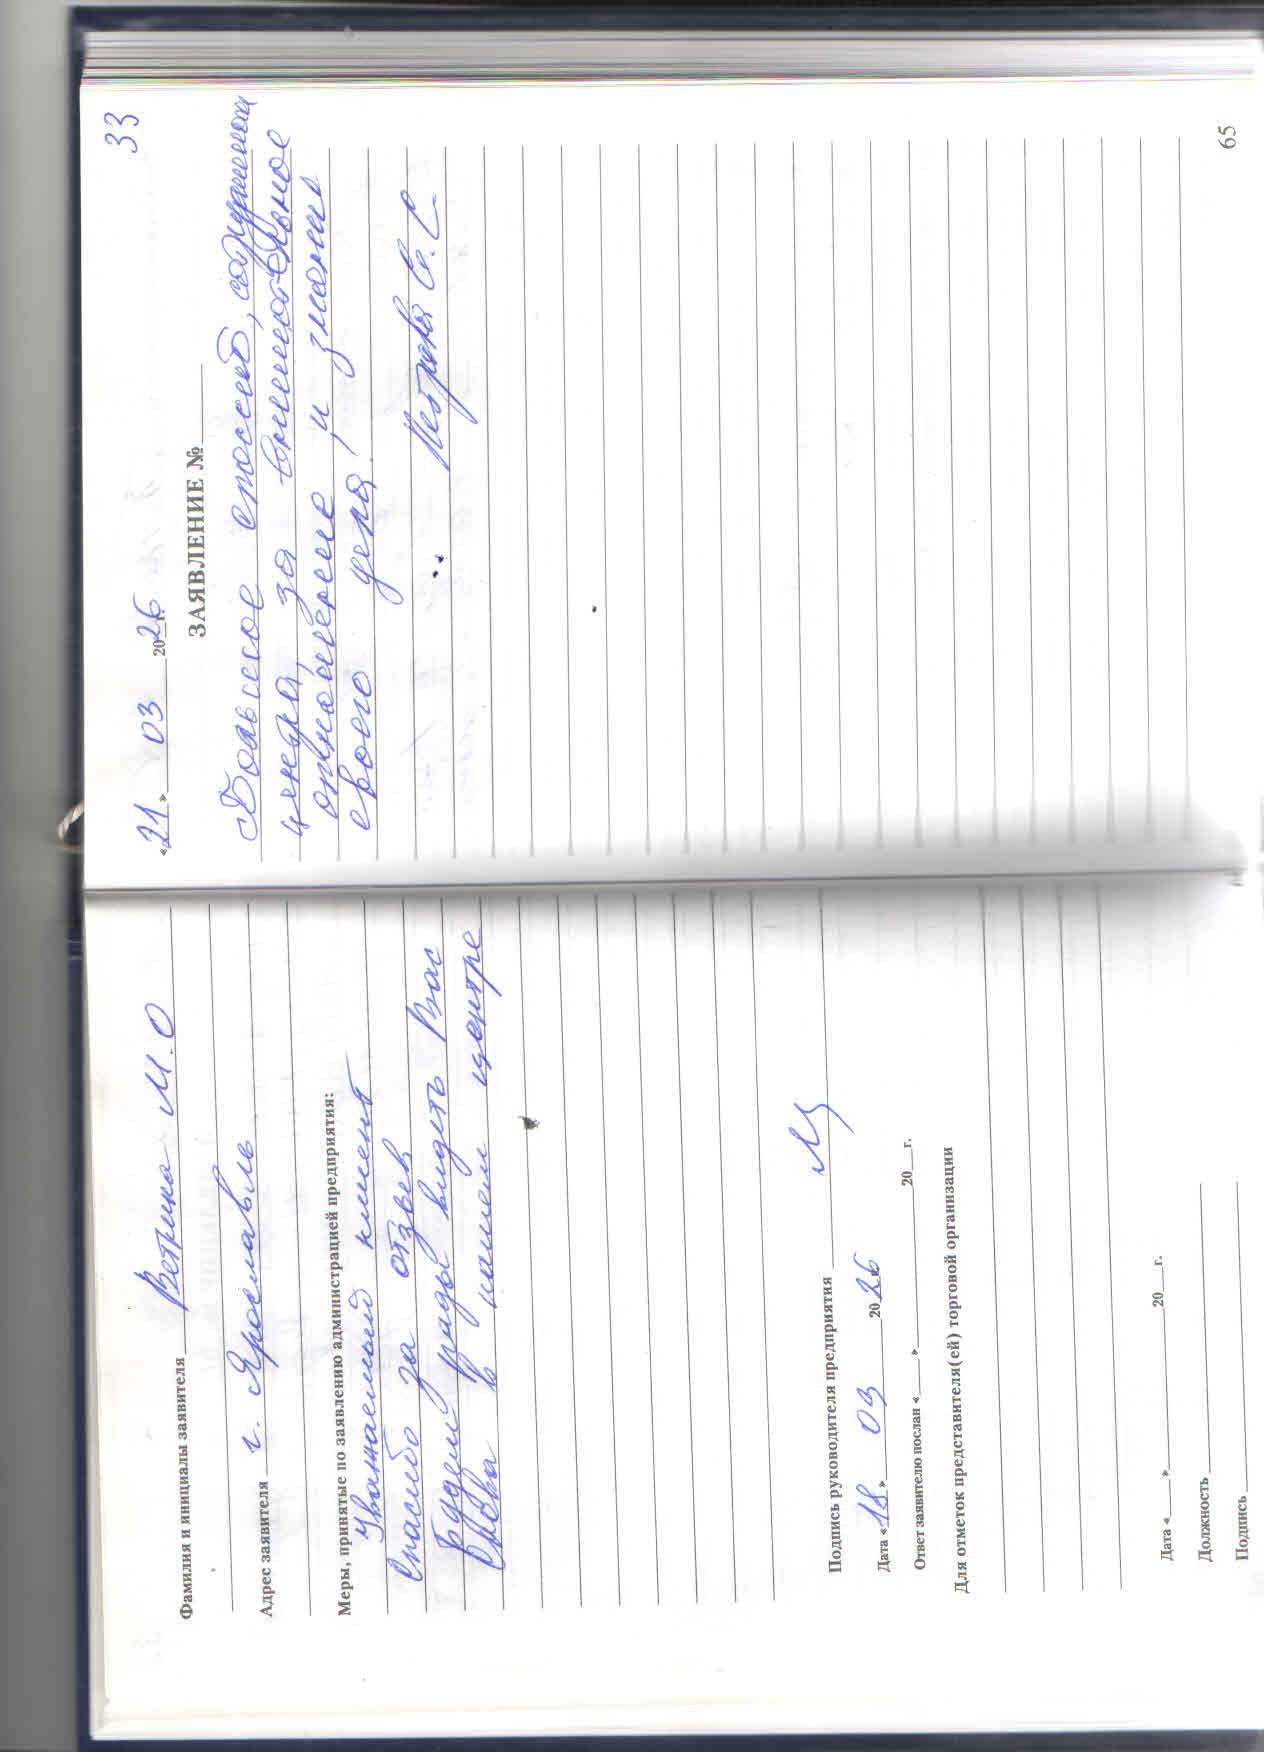 Фамилия и инициалы заявителя Веткина М.О
Адрес заявителя г. Ярославль
Меры, принятые по заявлению администрацией предприятия:
Уважаемый клиент
Спасибо за отзыв
Будем рады видеть Вас
Снова в нашем центре
Подпись руководителя предприятия
Дата «18» 03 2026
Ответ заявителю послан « » 20 г.
Для отметок представителя(ей) торговой организации
Дата « » 20 г.
Должность
Подпись
33
«21» 03 2026 г.
ЗАЯВЛЕНИЕ №
Большое спасибо, сотрудникам
центра, за внимательное
отношение, и знание
своего дела.
Петрова С.С
65